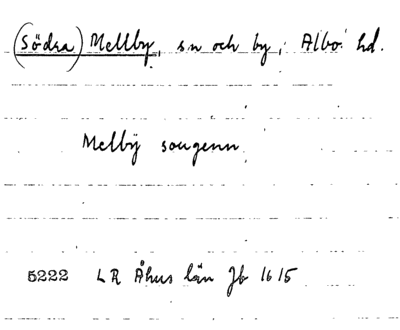 (Södra) Mellby, sn och by, Albo hd.
Mellbÿ sougenn
5222 LR Åhus län Jb 1615